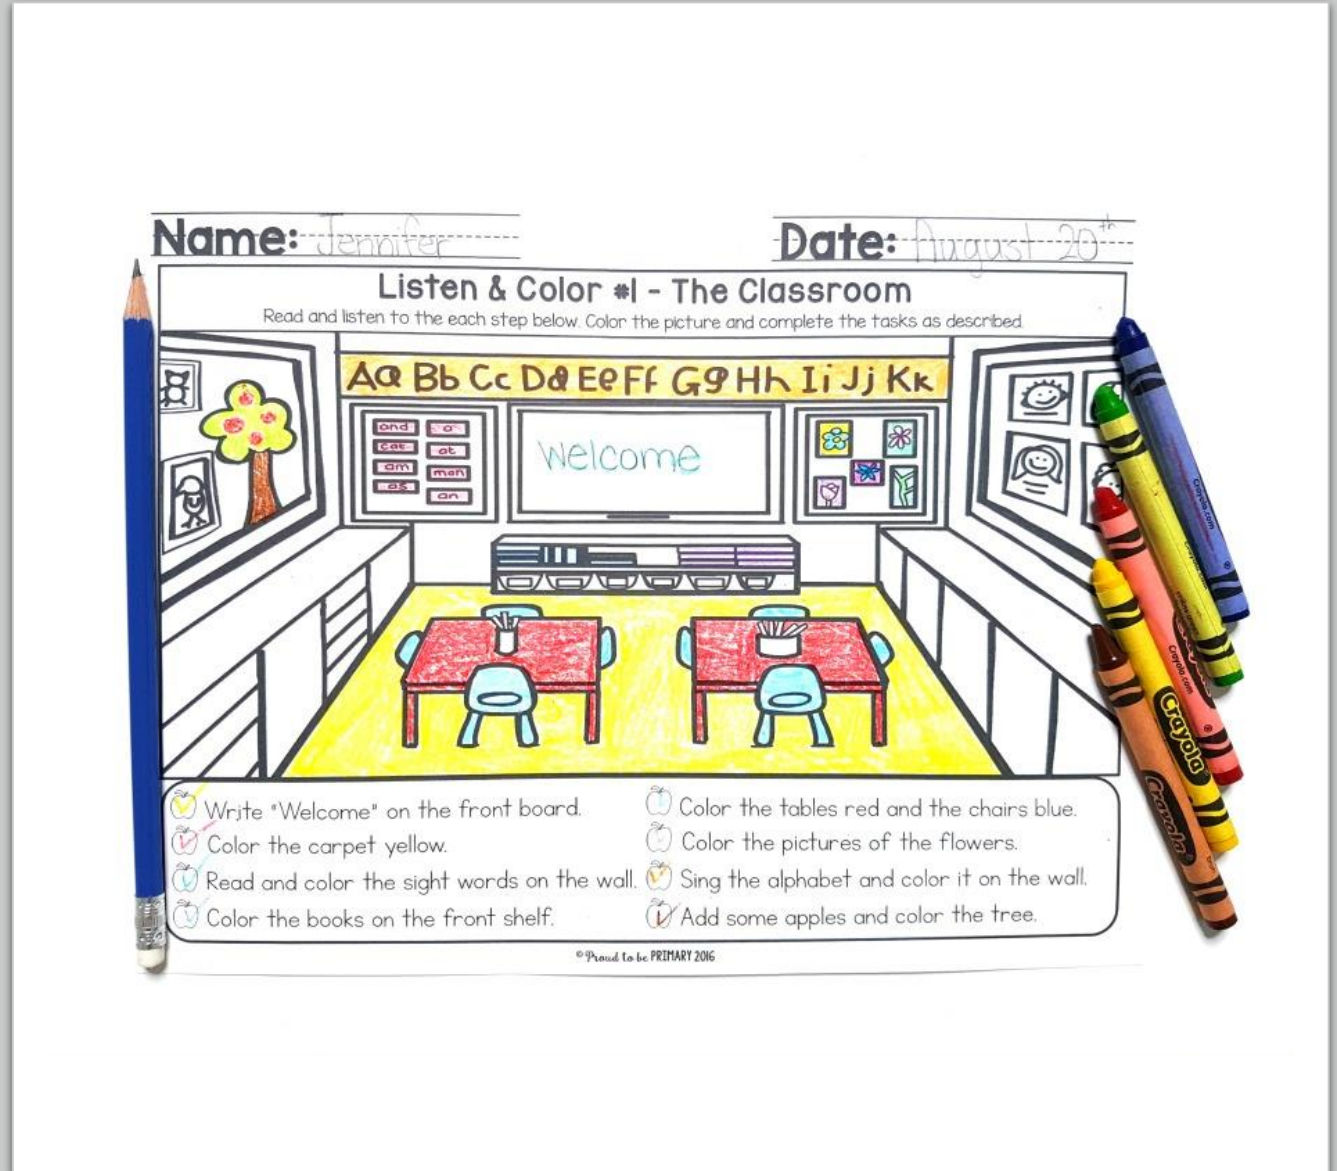 Name: Jennifer
Date: August 20th
Listen & Color #1 - The Classroom
Read and listen to the each step below. Color the picture and complete the tasks as described.
Aa Bb Cc Dd Ee Ff Gg Hh Ii Jj Kk
and a
cat at
am man
as an
Welcome
Write "Welcome" on the front board.
Color the carpet yellow.
Read and color the sight words on the wall.
Color the books on the front shelf.
Color the tables red and the chairs blue.
Color the pictures of the flowers.
Sing the alphabet and color it on the wall.
Add some apples and color the tree.
© Proud to be PRIMARY 2016
Crayola.com
Crayola.com
Crayola
Crayola